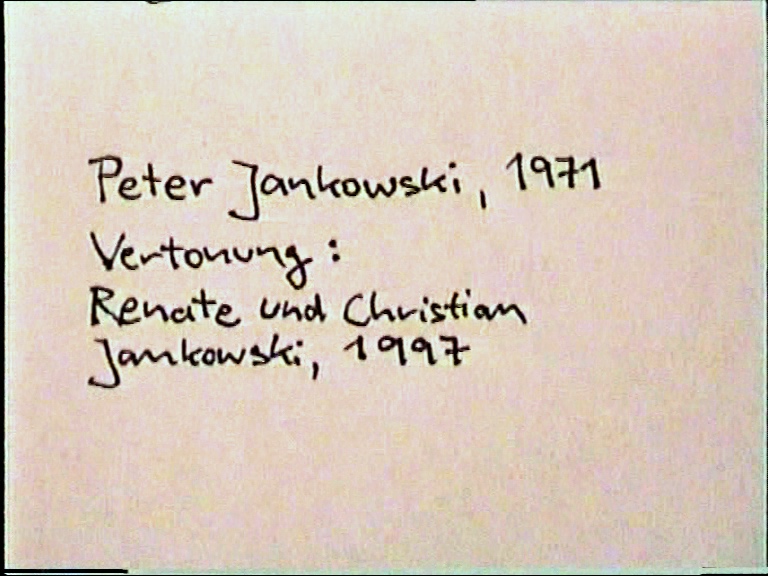 Peter Jankowski, 1971
Vertonung:
Renate und Christian
Jankowski, 1997